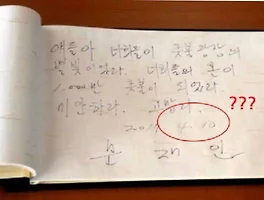 얘들아 너희들이 촛불광장의
별빛이었다. 너희들의 혼이
1000만 촛불이 되었다.
미안하다. 고맙다.
???
2017 4. 10
문 재 인